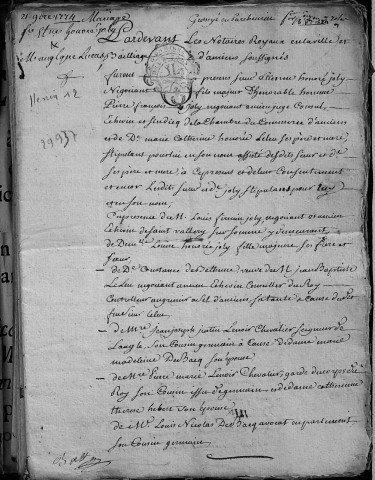 21 9bre 1774 Mariage
Sr. Etne honoré joly
Mlle angliqe Lucas
Henin 12
29937
Pardevant Les Notaires Royaux en la ville et
Bailliage d'amiens soussignés
furent presens Sieur Etienne honoré joly
Négociant fils majeur d'honorable homme
Pierre françois joly négociant ancien juge Consul,
Echevin et sindicq de la Chambre du Commerce d'amiens
et de De. marie Catherine honorée Leleu ses pere et mere
stipulant pour lui en son nom assisté desdits sieur et de
ses pere et mere, à ce presens et de leur Consentement
et encor Lesdits sieur et de. joly stipulans pour
et en son nom,
En presence du Mr. Louis firmin joly, négociant et ancien
Echevin de saint vallery sur somme y demeurant,
de Demlle. Louise honorée joly fille majeure, ses frere et
soeur,
- de De. Constance veuve du Mr. jean Baptiste
Leleu négociant ancien Echevin Conseiller du Roy
Controlleur au grenier à sel d'amiens sa tante à Cause dudit
feu sieur Leleu
- de Mre. jean joseph justin Lenoir Chevalier seigneur de
Laagle, son Cousin germain à Cause de dame marie
madeleine Du Bacq son épouse
- de Mre. Pierre marie Lenoir Chevalier, garde du corps du
Roy son Cousin issu de germain et de dame catherine
therese hebert son épouse
- de Mr. Louis Nicolas Du Bacq avocat en parlement
son Cousin germain